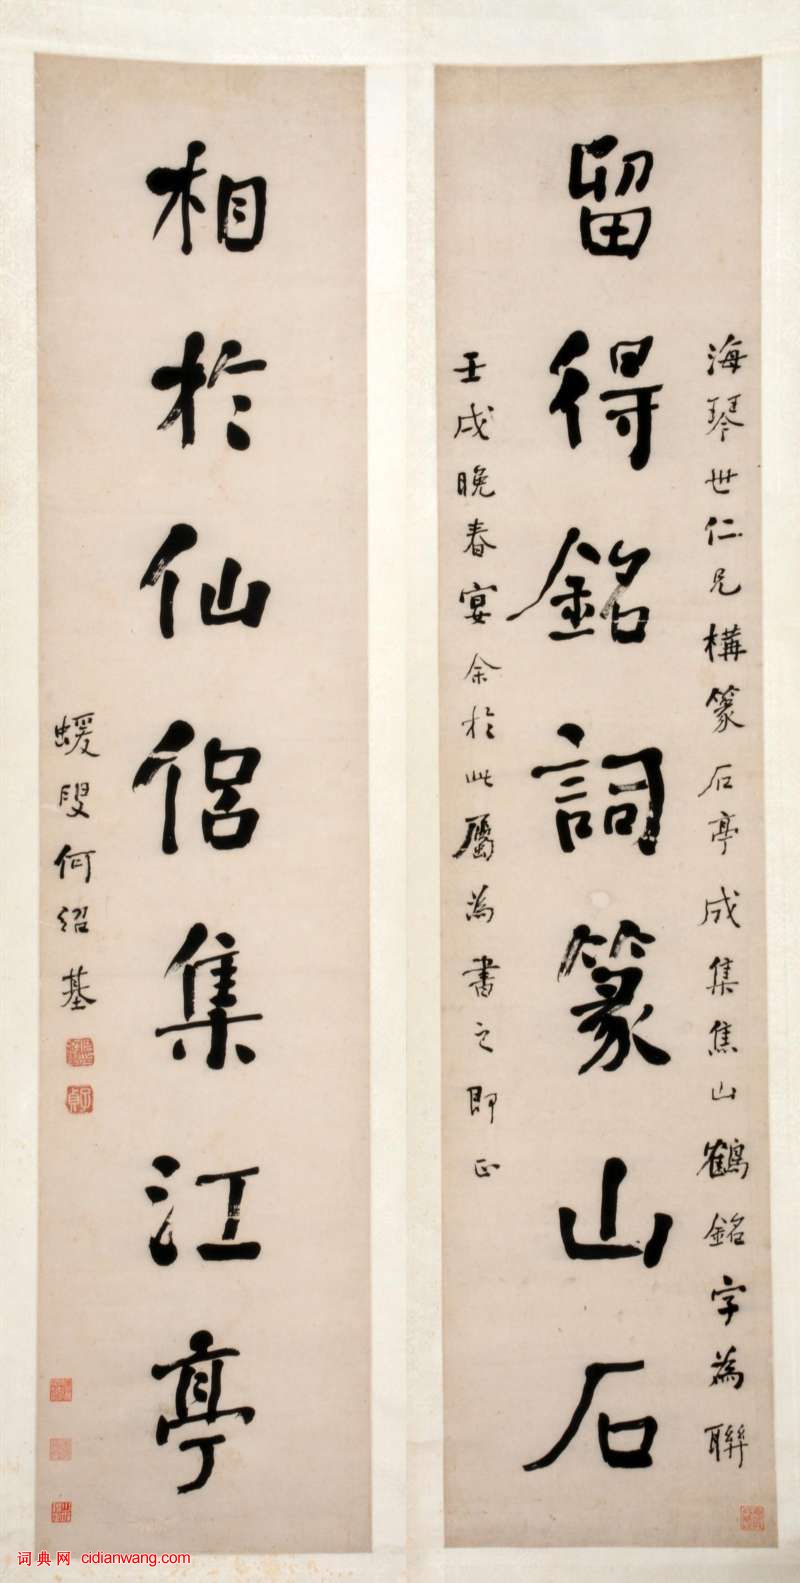 海琴世仁兄構篆石亭成集焦山鶴銘字為聯
留得銘詞篆山石
壬戌晚春宴余於此屬為書之即正
相於仙侶集江亭
蝯叟何紹基
词典网 cidianwang.com